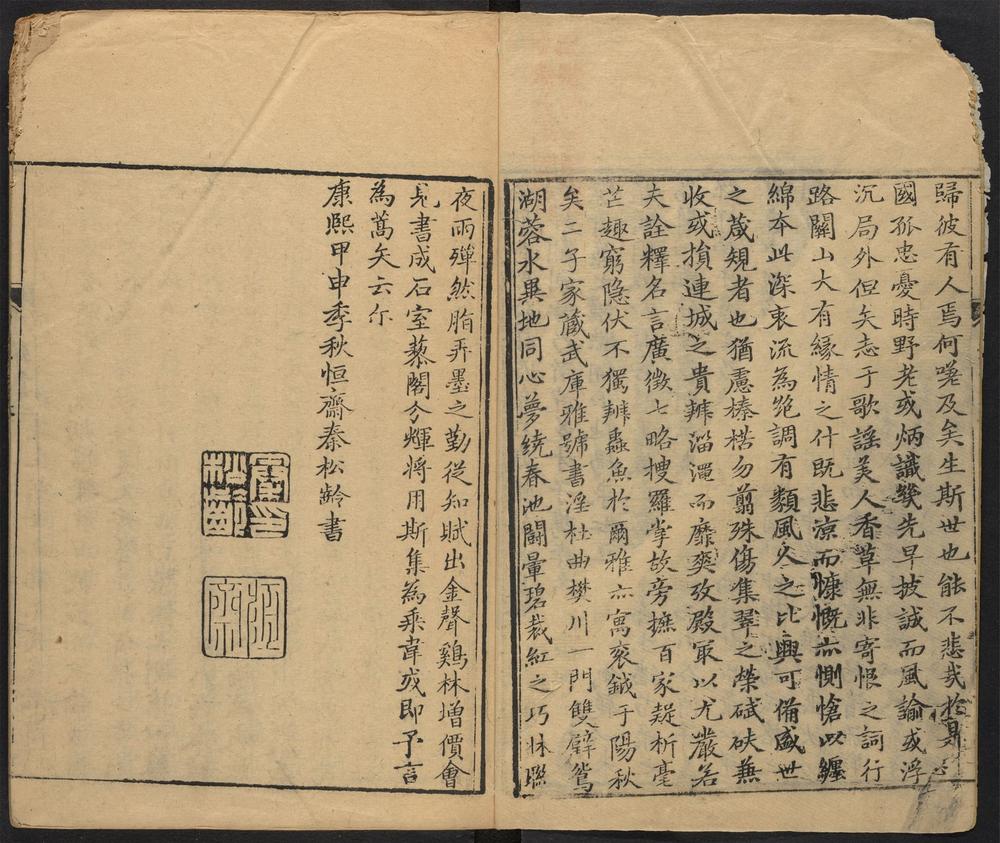 歸彼有人焉何嗟及矣生斯世也能不悲哉於是心
國孤忠憂時野老或炳識幾先早披誠而風諭或浮
沉局外但矢志于歌謡美人香草無非寄恨之詞行
路關山大有緣情之什既悲涼而慷慨亦惻愴以纏
綿本此深衷流為笵調有類風人之比興可備盛世
之箴規者也猶慮榛楛勿翦殊傷集翠之榮碔砆兼
收或損連城之貴辨淄澠而靡爽攷殿最以尤嚴若
夫詮釋名言廣徵七略搜羅掌故旁摭百家疑析毫
芒趣窮隐伏不獨辨蟲魚於爾雅亦寓衮鉞于陽秋
矣二子家藏武庫雅號書淫杜曲樊川一門雙璧鴛
湖蓉水異地同心夢繞春池鬭暈碧裁紅之巧牀聯
夜雨殫然脂弄墨之勤從知賦出金聲鷄林增價會
見書成石室藜閣分輝將用斯集為乘韋或即予言
為蒿矢云尔
康熙甲申季秋恒齋秦松齡書
松齡